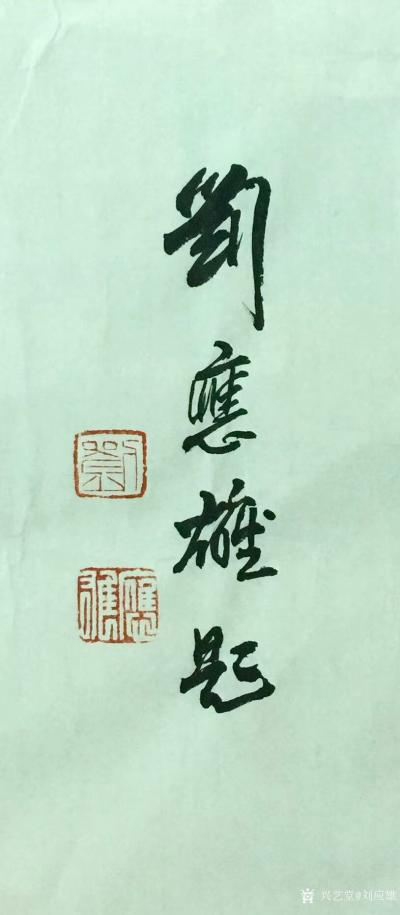 劉應雄題
劉
應雄
兴艺堂@刘应雄